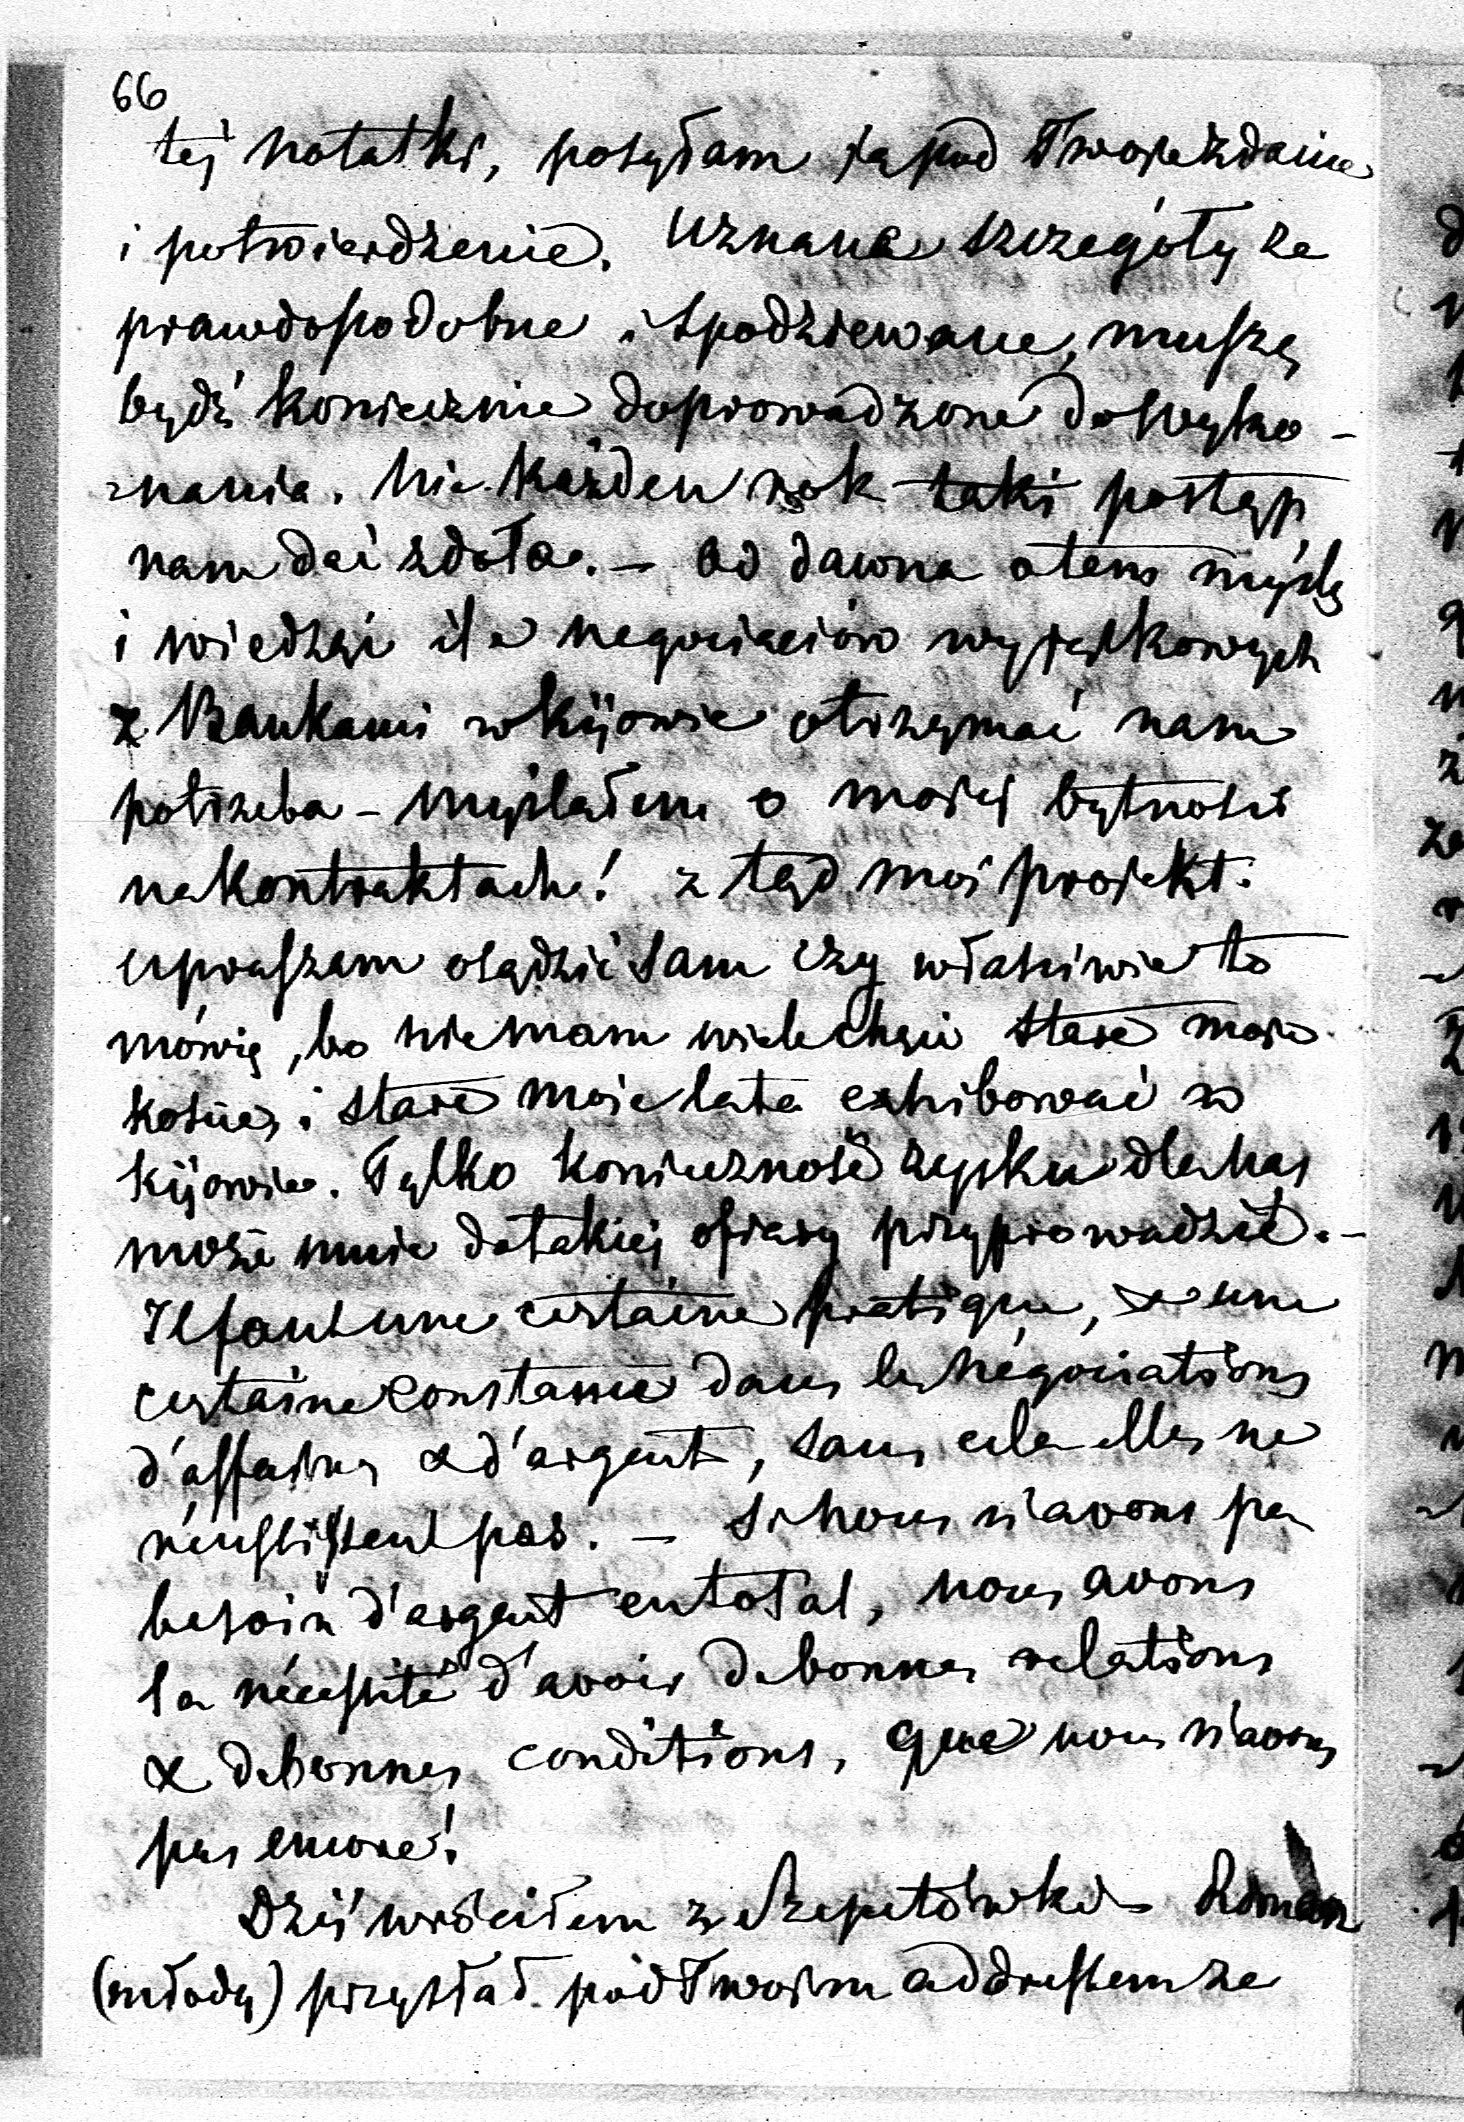 66
tej notatki, posyłam ją pod Twoje zdanie
i potwierdzenie. Uznane szczegóły za
prawdopodobne i spodziewane, muszą
bydź koniecznie doprowadzone do wyko-
-nania. Nie każden rok taki postęp
nam dać zdoła. – Od dawna o tem myślę
i wiedząc ile negociaciów wyjątkowych
z Bankami w Kijowie otrzymać nam
potrzeba – myślałem o mojej bytności
na kontraktach! z tąd mój projekt.
upraszam osądzić sam czy właściwie to
mówię, bo nie mam wiele chęci stare moje
kości, i stare moje lata exhibować w
Kijowie. Tylko konieczność zysku dla nas
może mnie do takiej ofiary przyprowadzić. –
Il faut une certaine pratique, & une
certaine constance dans les négociations
d'affaires & d'argent, sans cela elles ne
réussissent pas. – Si nous n'avons pas
besoin d'argent en total, nous avons
la nécessité d'avoir de bonnes relations
& de bonnes conditions, que nous n'avons
pas encore!
Dziś wróciłem z Szepetówki Roman
(młody) przysłał pod Twoim addressem ze